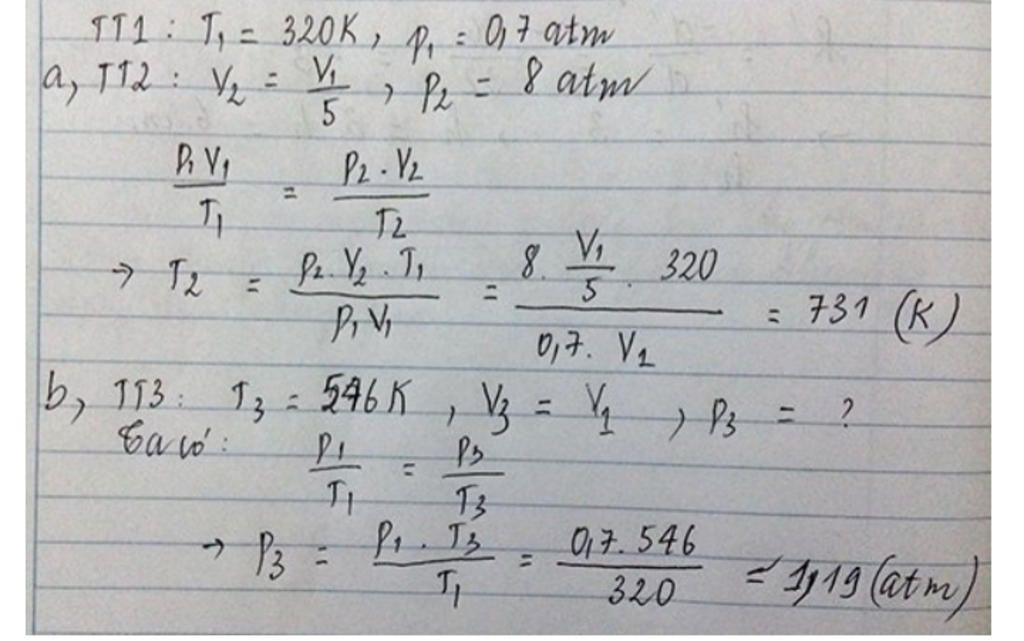 TT1 : T₁ = 320K, p₁ = 0,7 atm
a, TT2 : V₂ = V₁/5 , p₂ = 8 atm
p₁V₁/T₁ = p₂.V₂/T₂
→ T₂ = p₂.V₂.T₁/p₁V₁ = 8. V₁/5 . 320/0,7. V₁ = 731 (K)
b, TT3 : T₃ = 546K , V₃ = V₁ , p₃ = ?
Ta có :
p₁/T₁ = p₃/T₃
→ p₃ = p₁ . T₃/T₁ = 0,7. 546/320 = 1,19 (atm)